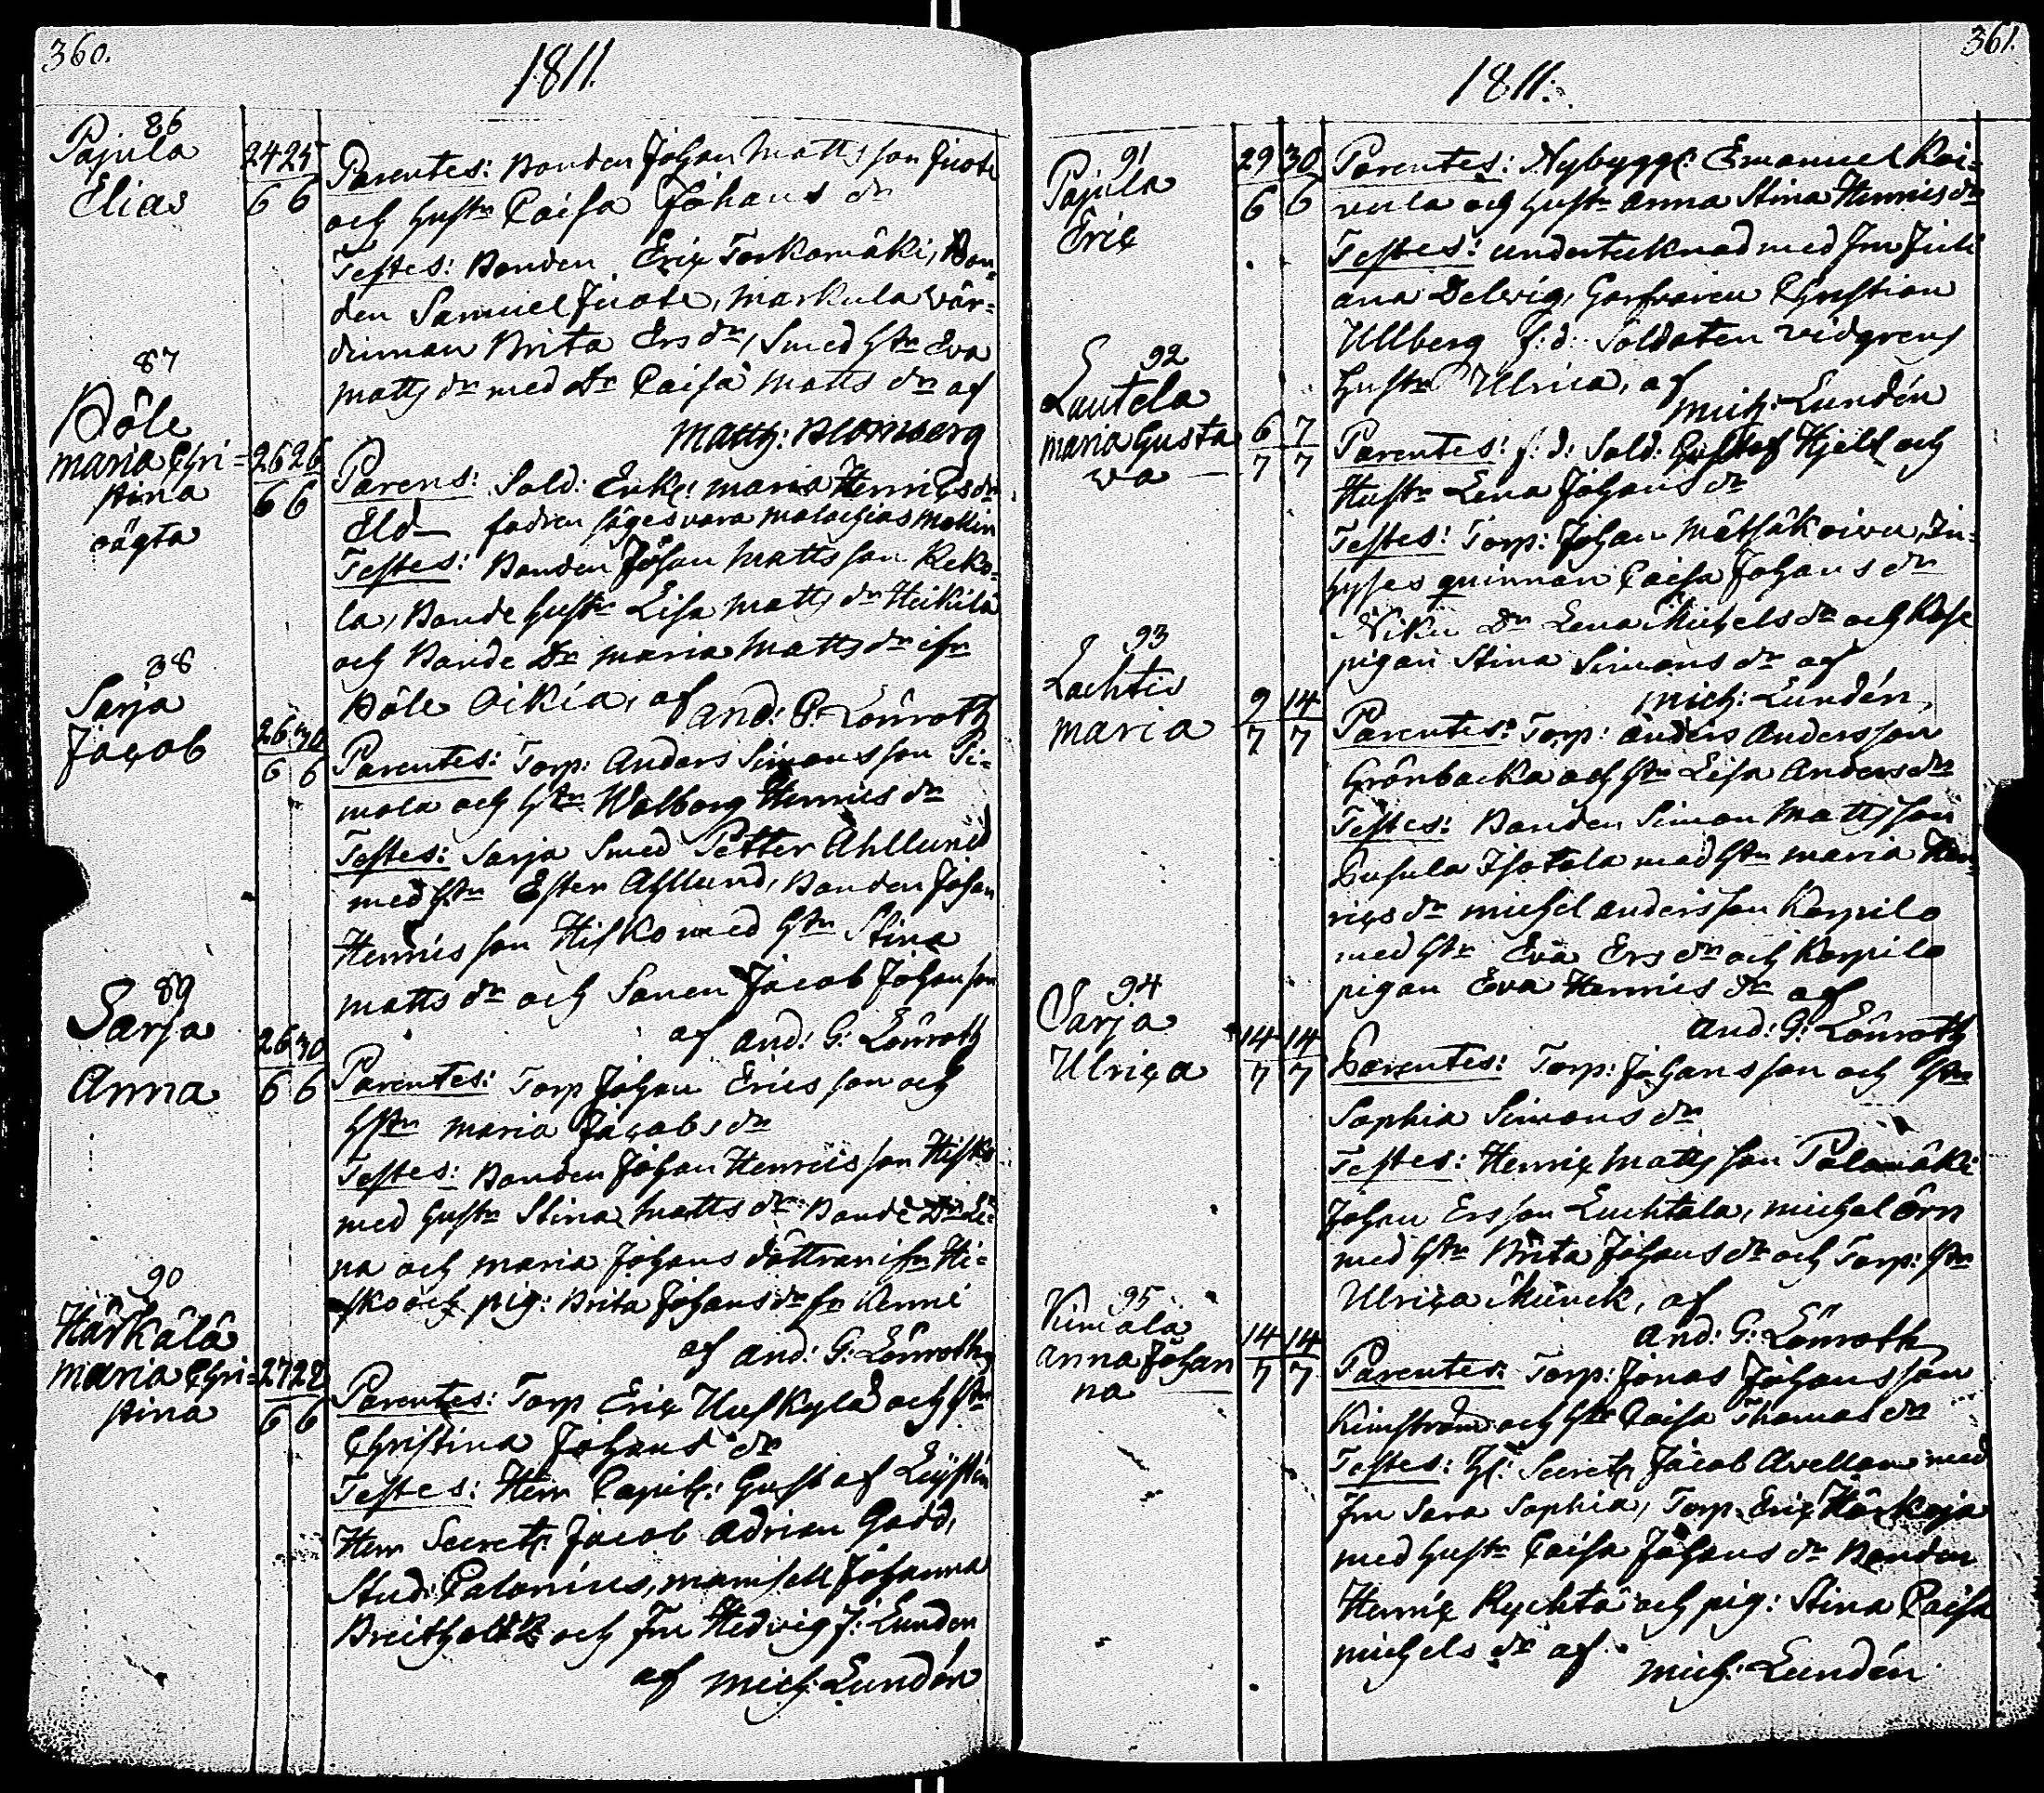 360.
1811.
86
Pajula
Elias
24 25
6 6
Parentes: Bonden Johan Matts son Juote
och hustr Caisa Johans dr
Testes: Bonden Eric Torkomäki, Bon=
den Samuel Juote, Markula vär=
dinnan Brita Ers dr, Smed hstr Eva
Matts dr med dr Caisa Matts dr af
Matth: Blomberg
87
Pöle
Maria Chri=
stina
oägta
26 26
6 6
Parens: Sold: Enk: Maria Henrics dr
Eld fadren säges vara Malachias Mollin
Testes: Bonden Johan Matts son Reko=
la, Bonde hustr Lisa Matts dr Heikilä
och Bonde Dr Maria Matts dr ifr
Pöle Oikia, af And: G: Lönroth
88
Sarja
Jacob
26 30
6 6
Parentes: Torp: Anders Simons son Ti=
mola och hstr Walborg Henrics dr
Testes: Sarja Smed Petter Ahllund
med hstr Ester Ahllund, Bonden Johan
Henrics son Hisko med hstr Stina
Matts dr och Sonen Jacob Johan son
af And: G: Lönroth
89
Sarja
Anna
26 30
6 6
Parentes: Torp Johan Erics son och
hstr Maria Jacobs dr
Testes: Bonden Johan Henrics son Hisko
med hustr Stina Matts dr Bonde Dr Li=
na och Maria Johans döttrar ifr Hi=
sko och pig: Brita Johans dr fr Kenni
af And: G: Lönroth
90
Härkälä
Maria Chri=
stina
27 28
6 6
Parentes: Torp Eric Huskylä och hstr
Christina Johans dr
Testes: Herr Capit: Gustaf Leijsten
Herr Secret: Jacob Adrian Gadd,
Stud: Calonius, Mamsell Johanna
Breitholtz och Fru Hedvig J: Lunden
af Mich: Lundén
361.
1811.
91
Pajula
Eric
29 30
6 6
Parentes: Nybygg: Emanuel Koi=
vula och hustr Anna Stina Henrics dr
Testes: undertecknad med Fru Juli
ana Delvig, Garfvaren Christian
Ullberg f: d: Soldaten Vidgrens
hustr Ulrica, af
Mich: Lundén
92
Lautela
Maria Gusta
va
6 7
7 7
Parentes: f: d: Sold: Gustaf Hjelt och
Hustr Lena Johans dr
Testes: Torp: Johan Mätsäkoivu, In=
hyses quinnan Caisa Johans dr
Niku Dr Lena Michels dr och
pigan Stina Simons dr af
Mich: Lundén,
93
Lachtis
Maria
9 14
7 7
Parentes: Torp: Anders Anders son
Grönbacka och hstr Lisa Anders dr
Testes: Bonden Simon Matts son
Pusula Isotalo med hstr Maria Hen=
rics dr Michel Anders son Karpilo
med hstr Eva Ers dr och Karpilo
pigan Eva Henrics dr af
And: G: Lönroth
94
Sarja
Ulrica
14 14
7 7
Parentes: Torp: Johans son och hstr
Sophia Simons dr
Testes: Henric Matts son Palomäki
Johan Ers son Luchtala, Michel Örn
med hstr Brita Johans dr och Torp: hstr
Ulrica Munck, af
And: G: Lönroth
95
Viimola
Anna Johan
na
14 14
7 7
Parentes: Torp: Jonas Johans son
Kimström och hstr Caisa Thomas dr
Testes: H: Secret: Jacob Avellan med
Fru Sara Sophia, Torp: Eric Härkoja
med hustr Caisa Johans dr Bonden
Henric Rychtä och pig: Stina Caisa
Michels dr af
Mich: Lundén